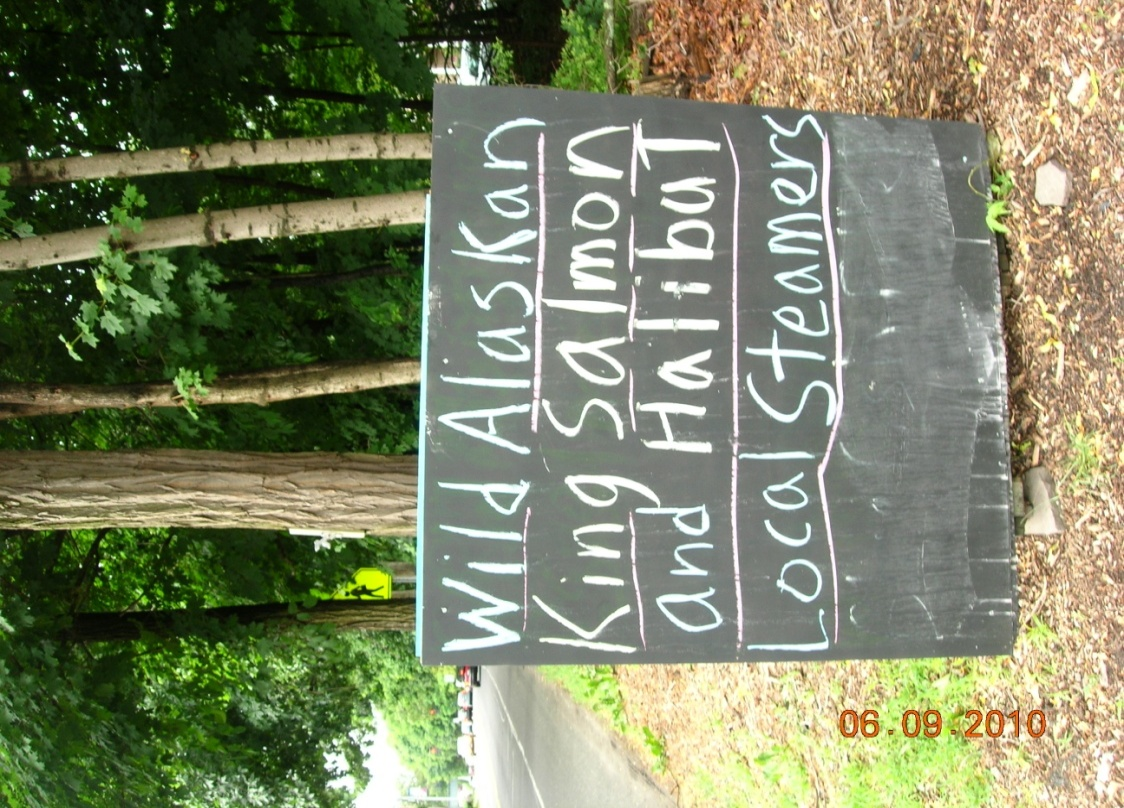 Wild Alaskan
King Salmon
and Halibut
Local Steamers
06.09.2010